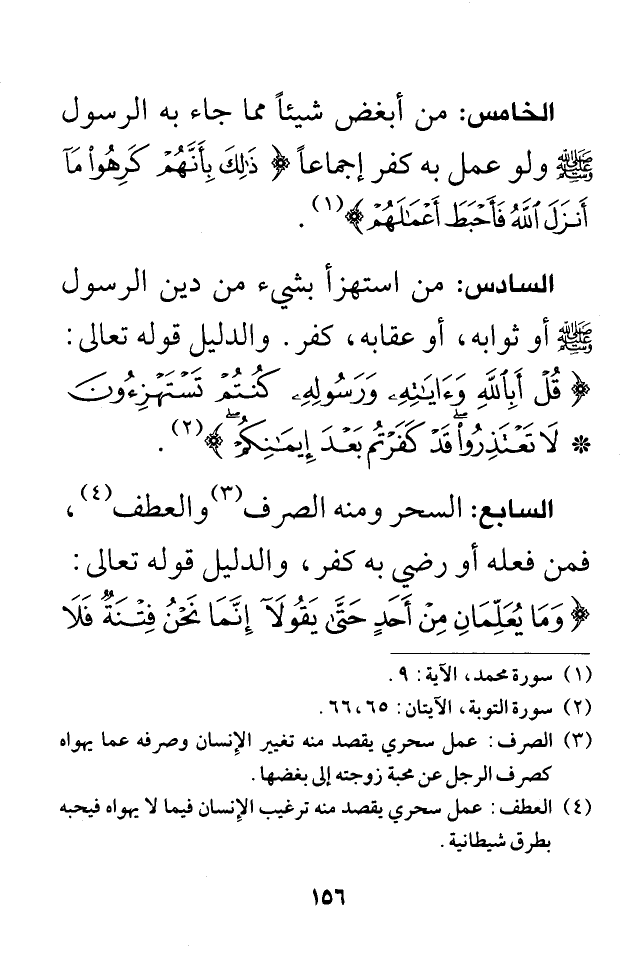 الخامس: من أبغض شيئاً مما جاء به الرسول
ﷺ ولو عمل به كفر إجماعاً ﴿ ذَٰلِكَ بِأَنَّهُمْ كَرِهُوا۟ مَآ
أَنزَلَ ٱللَّهُ فَأَحْبَطَ أَعْمَـٰلَهُمْ ﴾(١).
السادس: من استهزأ بشيء من دين الرسول
ﷺ أو ثوابه، أو عقابه، كفر. والدليل قوله تعالى:
﴿ قُلْ أَبِٱللَّهِ وَءَايَـٰتِهِۦ وَرَسُولِهِۦ كُنتُمْ تَسْتَهْزِءُونَ
* لَا تَعْتَذِرُوا۟ۖ قَدْ كَفَرْتُم بَعْدَ إِيمَـٰنِكُمْۖ ﴾(٢).
السابع: السحر ومنه الصرف(٣) والعطف(٤)،
فمن فعله أو رضي به كفر، والدليل قوله تعالى:
﴿ وَمَا يُعَلِّمَانِ مِنْ أَحَدٍ حَتَّىٰ يَقُولَآ إِنَّمَا نَحْنُ فِتْنَةٌ فَلَا
(١) سورة محمد، الآية: ٩.
(٢) سورة التوبة، الآيتان: ٦٥، ٦٦.
(٣) الصرف: عمل سحري يقصد منه تغيير الإنسان وصرفه عما يهواه
كصرف الرجل عن محبة زوجته إلى بغضها.
(٤) العطف: عمل سحري يقصد منه ترغيب الإنسان فيما لا يهواه فيحبه
بطرق شيطانية.
١٥٦